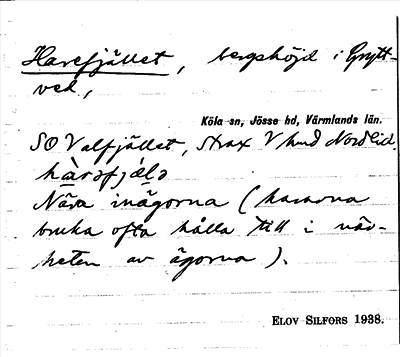 Harefjället, bergshöjd i Grytt-
ved,
Köla sn, Jösse hd, Värmlands län.
SO Valfjället, strax V hmd Nordlid.
hàrəfjælə
Nära inägorna (hararna
bruka ofta hålla till i när-
heten av ägorna).
ELOV SILFORS 1938.